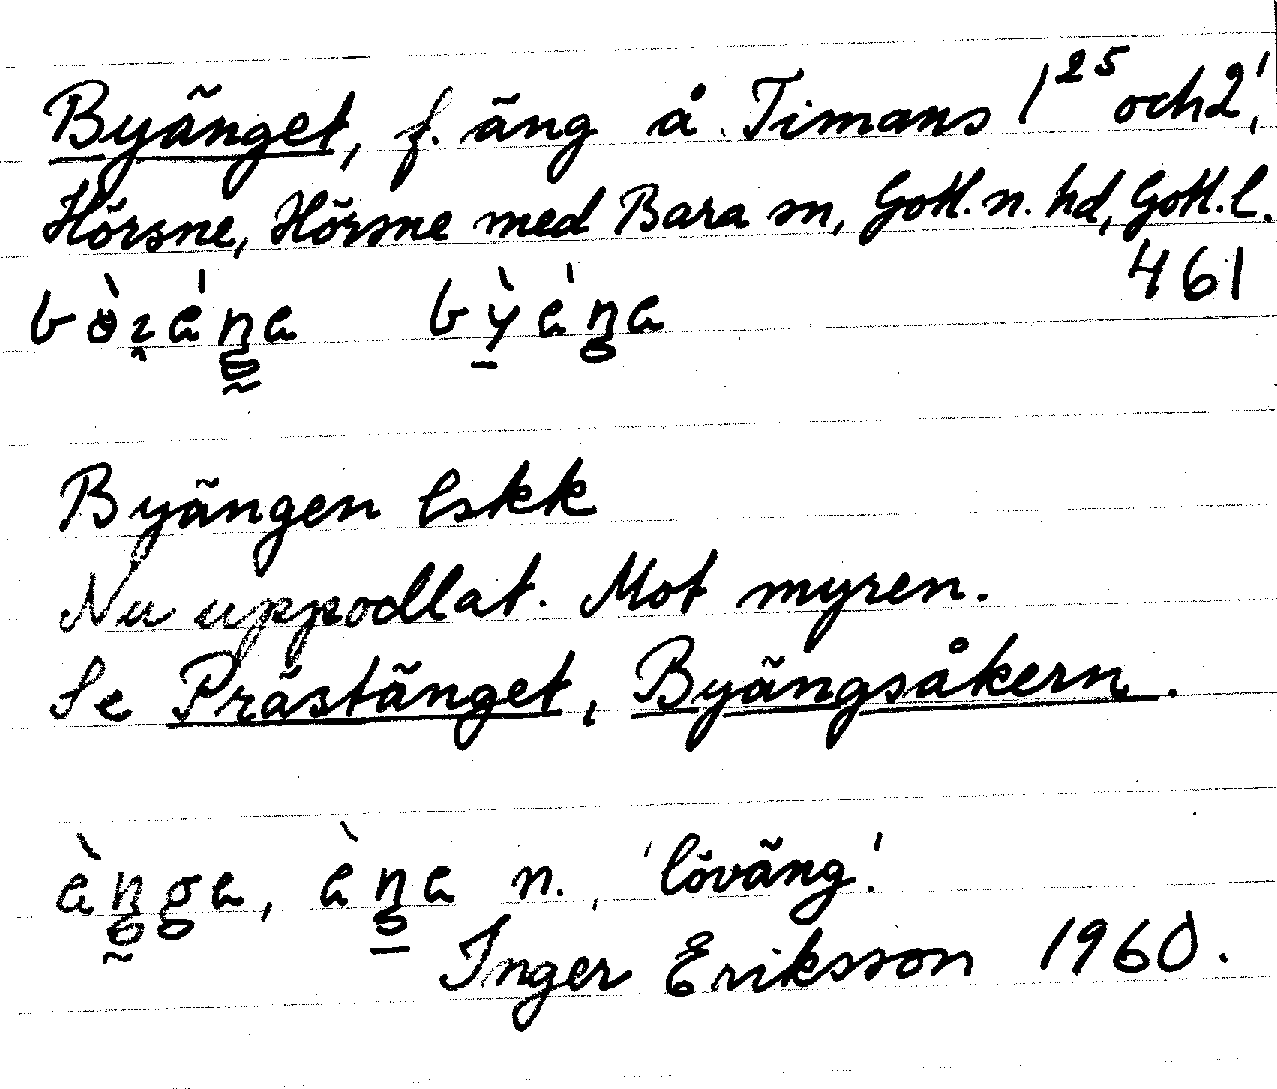 Byänget, f. äng å Timans 1²⁵ och 2¹,
Hörsne, Hörsne med Bara sn, Gotl. n. hd, Gotl. l.
461
Byängen lskk
Nu uppodlat. Mot myren.
Se Prästänget, Byängsåkern.
n., 'löväng'.
Inger Eriksson 1960.